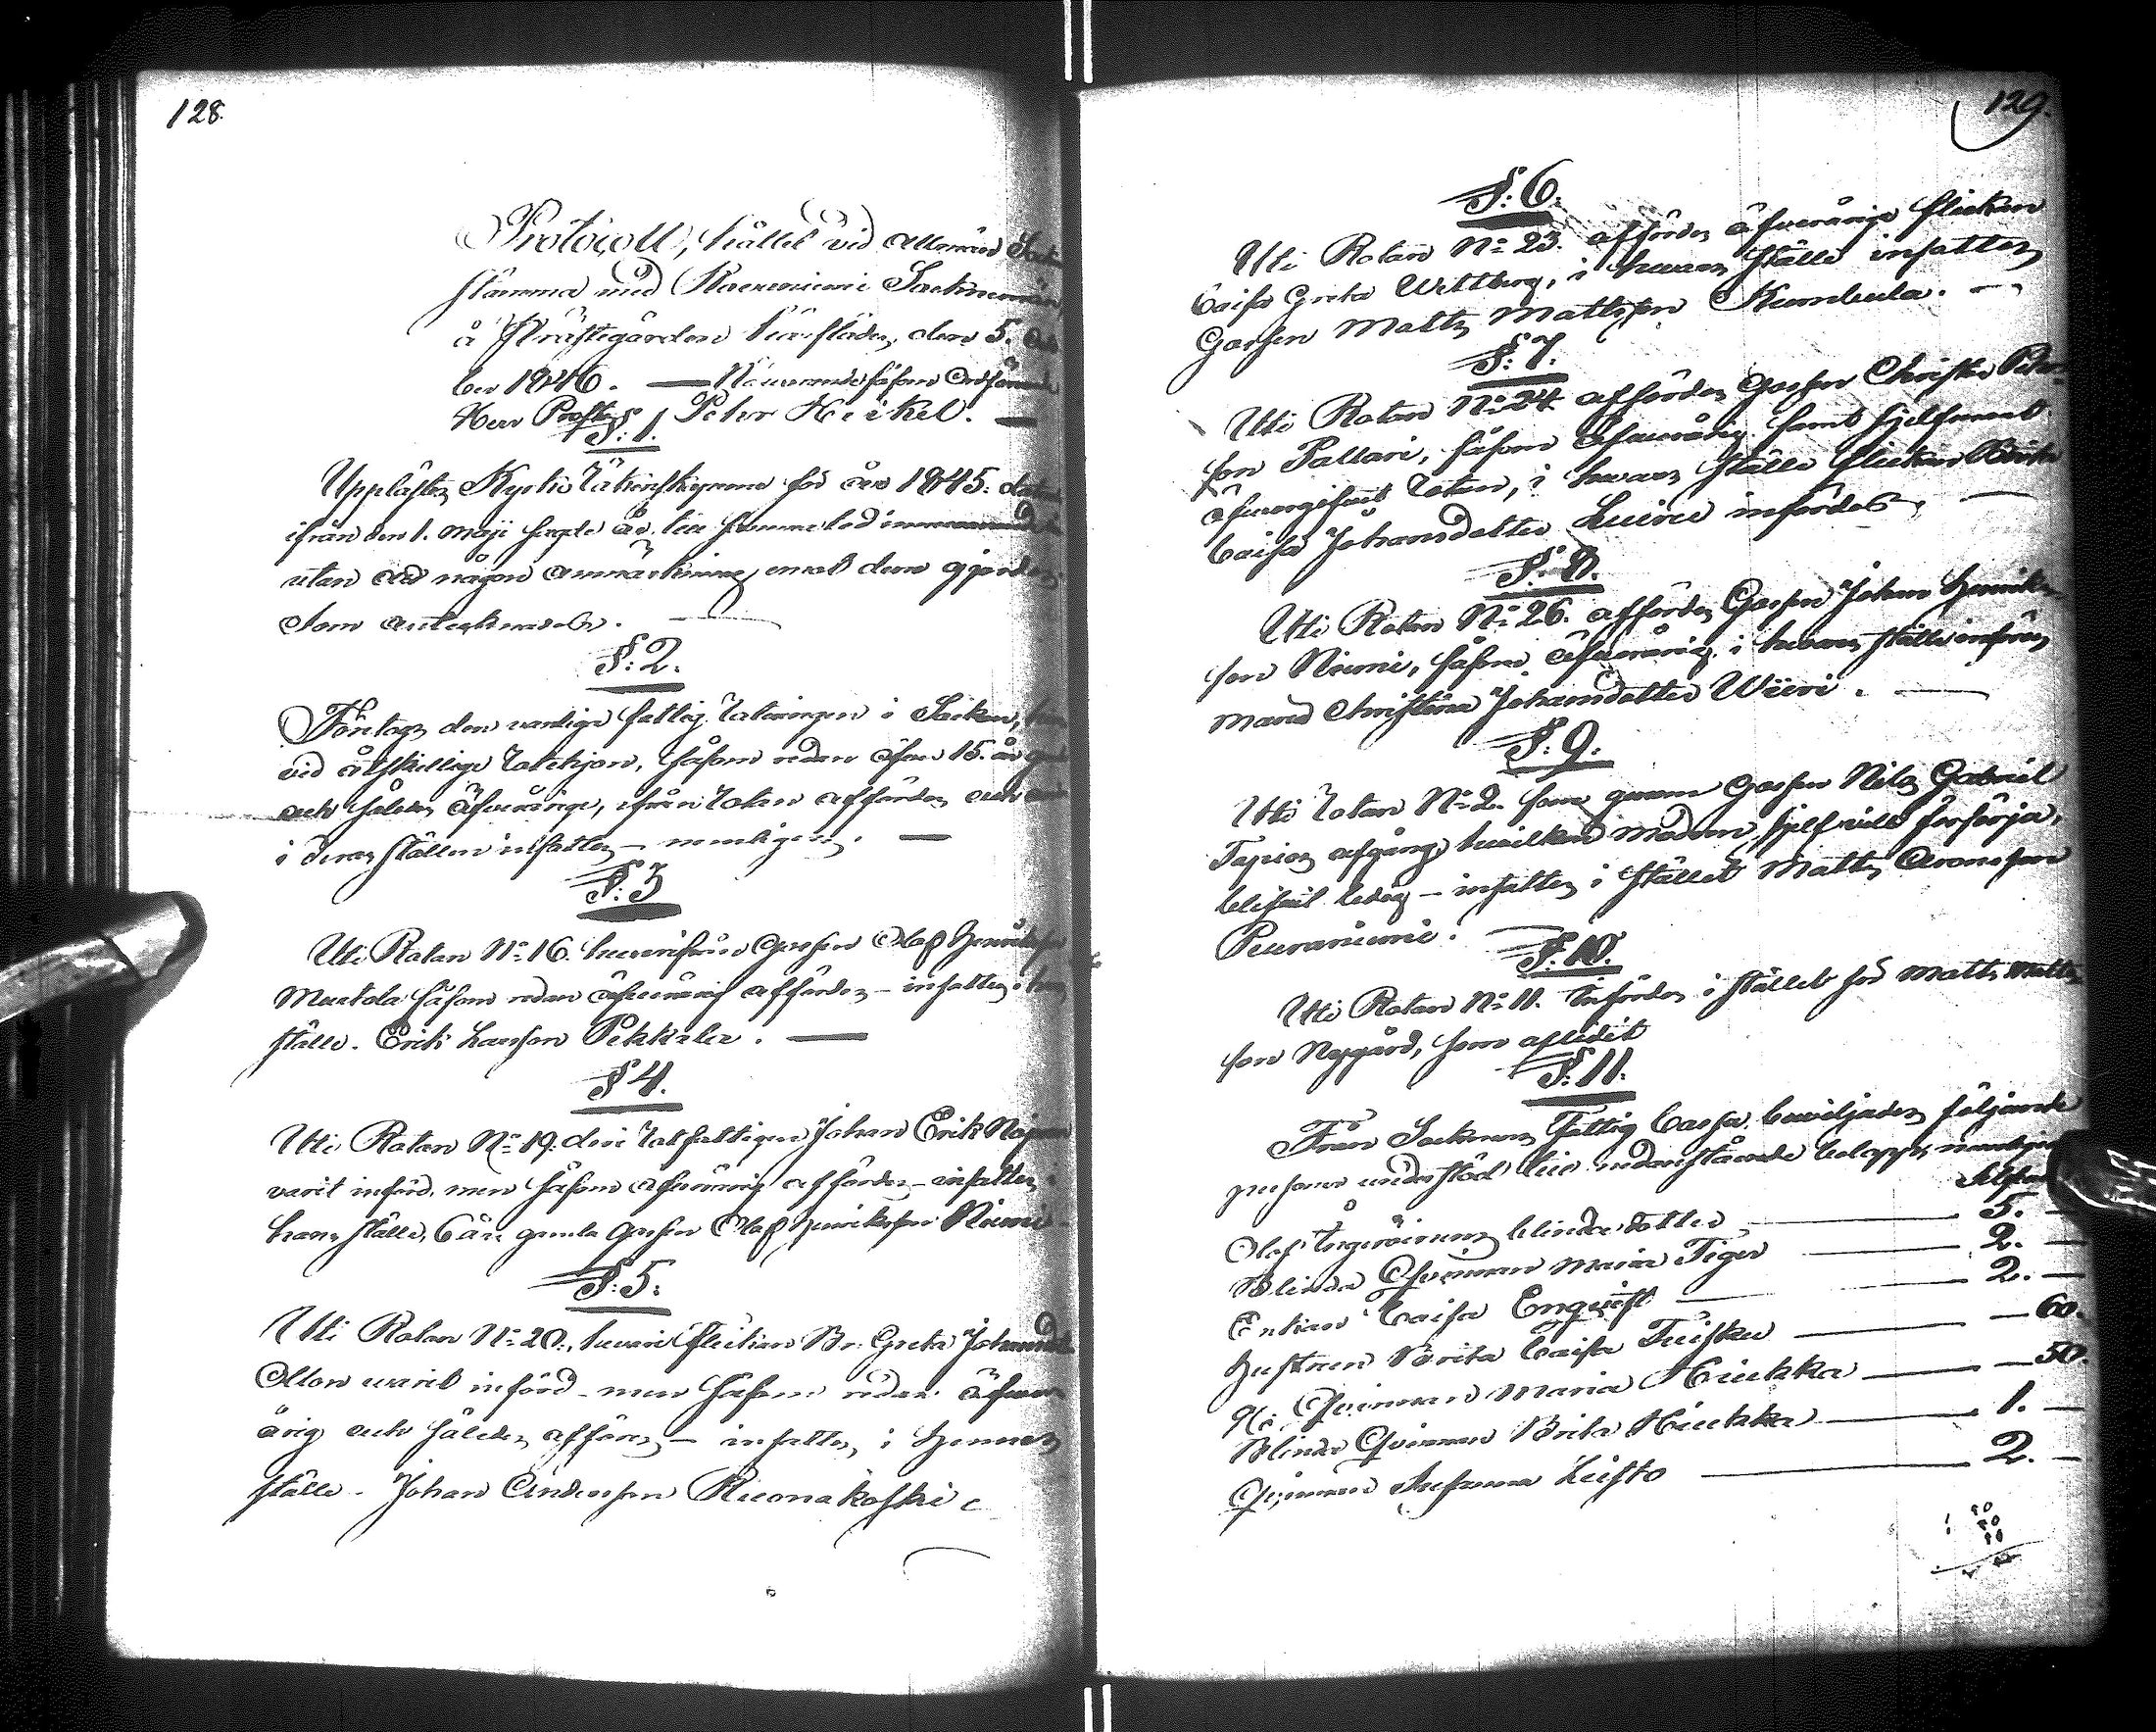 128.
Protocoll, hållet vid allmän Sockne
stämma med Rovaniemi Socknemän
å Prästegården härstädes, den 5. Octo
ber 1846. — Närvarande såsom Ordförande
Herr Prosten Peter Heikel. —
§: 1.
Upplästes Kyrko Räkenskaperna för år 1845. 
ifrån den 1. Maji sagde år till samma tid
utan att någon anmärkning emot dem gjordes.
Som antecknades. —
§: 2.
Företogs den vanliga fattig Roteringen i Socken,
vid åtskillige Rotehjon, såsom redan öfver 15. år
och således öfveråriga, ifrån Rotan affördes och
i deras ställen insattes — nemligen. —
§: 3
Uti Rotan No 16. hvarifrån Gossen Olof Henriksson
Mustola såsom redan öfverårig affördes — insattes i
ställe. Erik Larsson Pekkala. —
§ 4.
Uti Rotan No 19. den Rotfattigen Johan Erik
varit införd, men såsom öfverårig affördes — insattes i
hans ställe, 6 års gamla Gossen Olof Henriksson Niemi
§: 5.
Uti Rotan No 20., hvari Flickan Br. Greta Johansd.
Ollon varit införd — men såsom redan öfver
årig och således afföres — insattes i hennes
ställe — Johan Andersson Ruonakoski
129.
§: 6.
Uti Rotan No 23. affördes öfveråriga flickan
Caisa Greta Wettberg, i hvars ställe insattes
Gossen Matts Mattsson Kumbula. —
§: 7.
Uti Rotan No 24 affördes Gossen Christer Peters
son Pallari, såsom öfverårig samt sjelfmant
öfvergifvit Rotan, i hvars ställe flickan Brita
Caisa Johansdotter Luiro infördes. —
§: 8.
Uti Rotan No 26. affördes Gossen Johan Henriks
son Niemi, såsom öfverårig, i hvars ställe införes
Maria Christina Johansdotter Wiiri. —
§: 9.
Uti Rotan No 2. som genom Gossen Nils Gabriel
Tapios afgång, hvilken modren sjelf vill försörja,
blifvit ledig — insattes i stället Matts Aronsson
Peuraniemi. —
§: 10.
Uti Rotan No 11. infördes i stället för Matts Matts
son Nygård, som aflidit
§: 11.
Från Socknens Fattig Cassa, beviljades följande
personer understöd till nedanstående belopp, nemligen
Silfver
Olof Ångeröinens blinda dotter — 5. —
Blinda Qvinnan Maria Tiger — 2. —
Enkan Caisa Enqvist — 2. —
Hustrun Brita Caisa Tuisku — 60.
Qvinnan Maria Hiukka — 50.
Blinda Qvinnan Brita Hiukka — 1. —
Qvinnan Susanna Luisto — 2. —